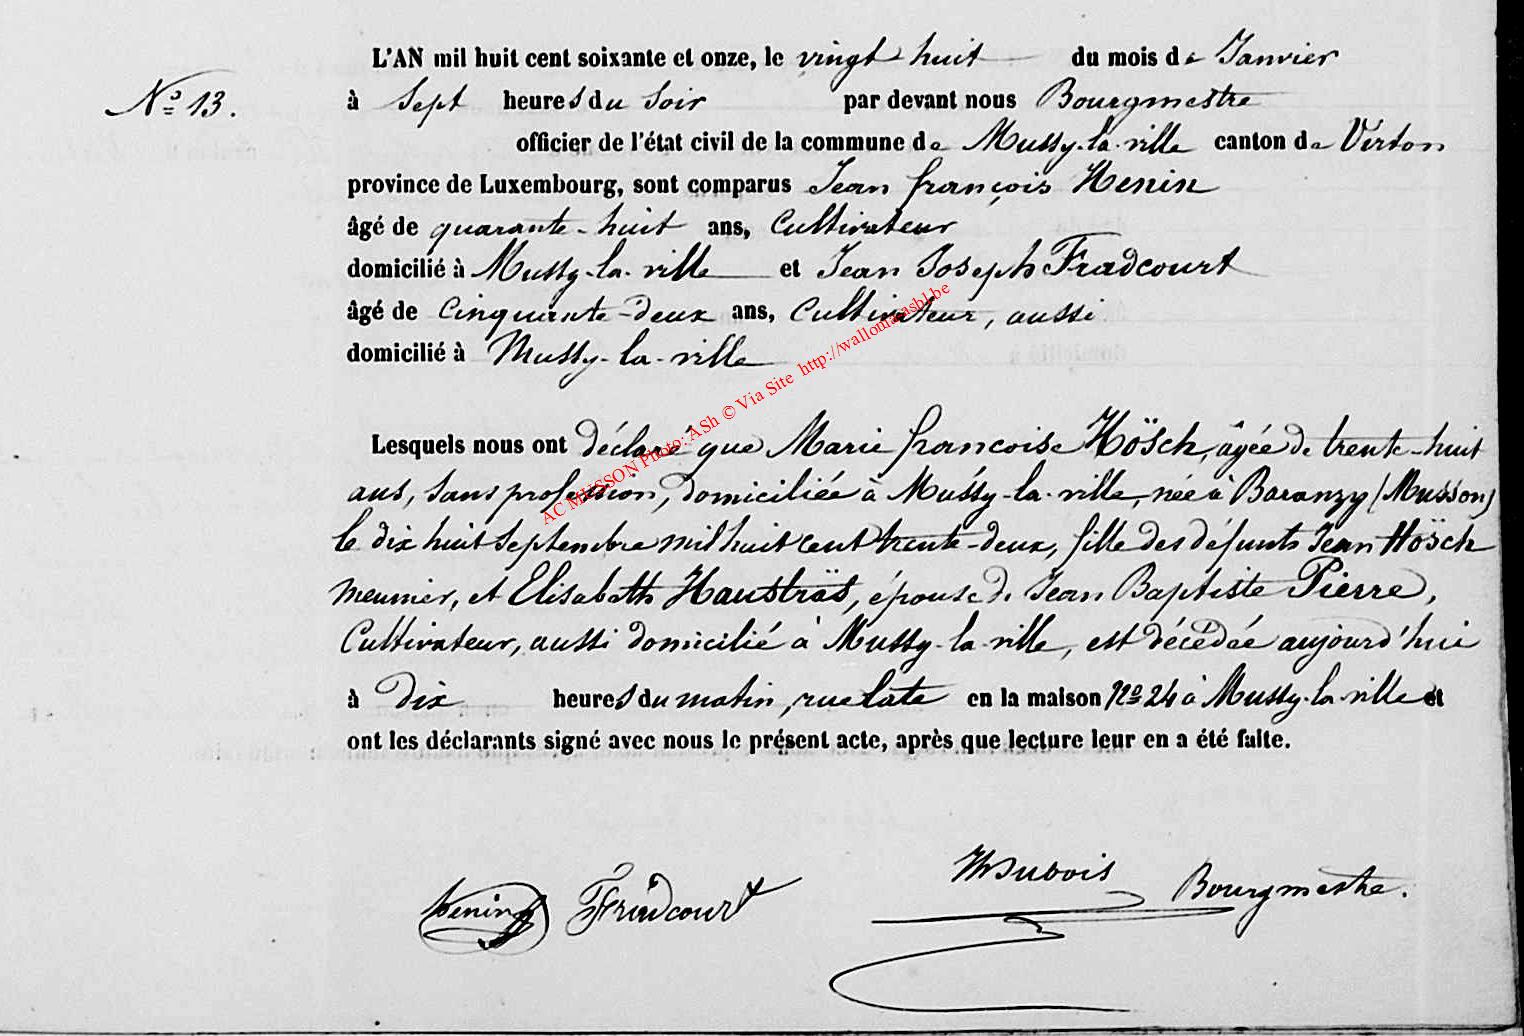 L'AN mil huit cent soixante et onze, le vingt-huit du mois de Janvier
N° 13.
à Sept heures du Soir par devant nous Bourgmestre
officier de l'état civil de la commune de Mussy-la-ville canton de Virton
province de Luxembourg, sont comparus Jean françois Henin
âgé de quarante-huit ans, Cultivateur
domicilié à Mussy-la-ville et Jean Joseph Fradcourt
âgé de Cinquante-deux ans, Cultivateur, aussi
domicilié à Mussy-la-ville
AC MUSSON Photo: ASh © Via Site http://wallonia.asbl.be
Lesquels nous ont déclaré que Marie françoise Hösch, âgée de trente-huit
ans, sans profession, domiciliée à Mussy-la-ville, née à Baranzy (Musson)
le dix huit Septembre mil huit cent trente-deux, fille des défunts Jean Hösch
meunier, et Elisabeth Haustrãs, épouse de Jean Baptiste Pierre,
Cultivateur, aussi domicilié à Mussy-la-ville, est décédée aujourd'hui
à dix heures du matin, rue late en la maison N° 24 à Mussy-la-ville et
ont les déclarants signé avec nous le présent acte, après que lecture leur en a été faite.
henin Fradcourt Dubois Bourgmestre.